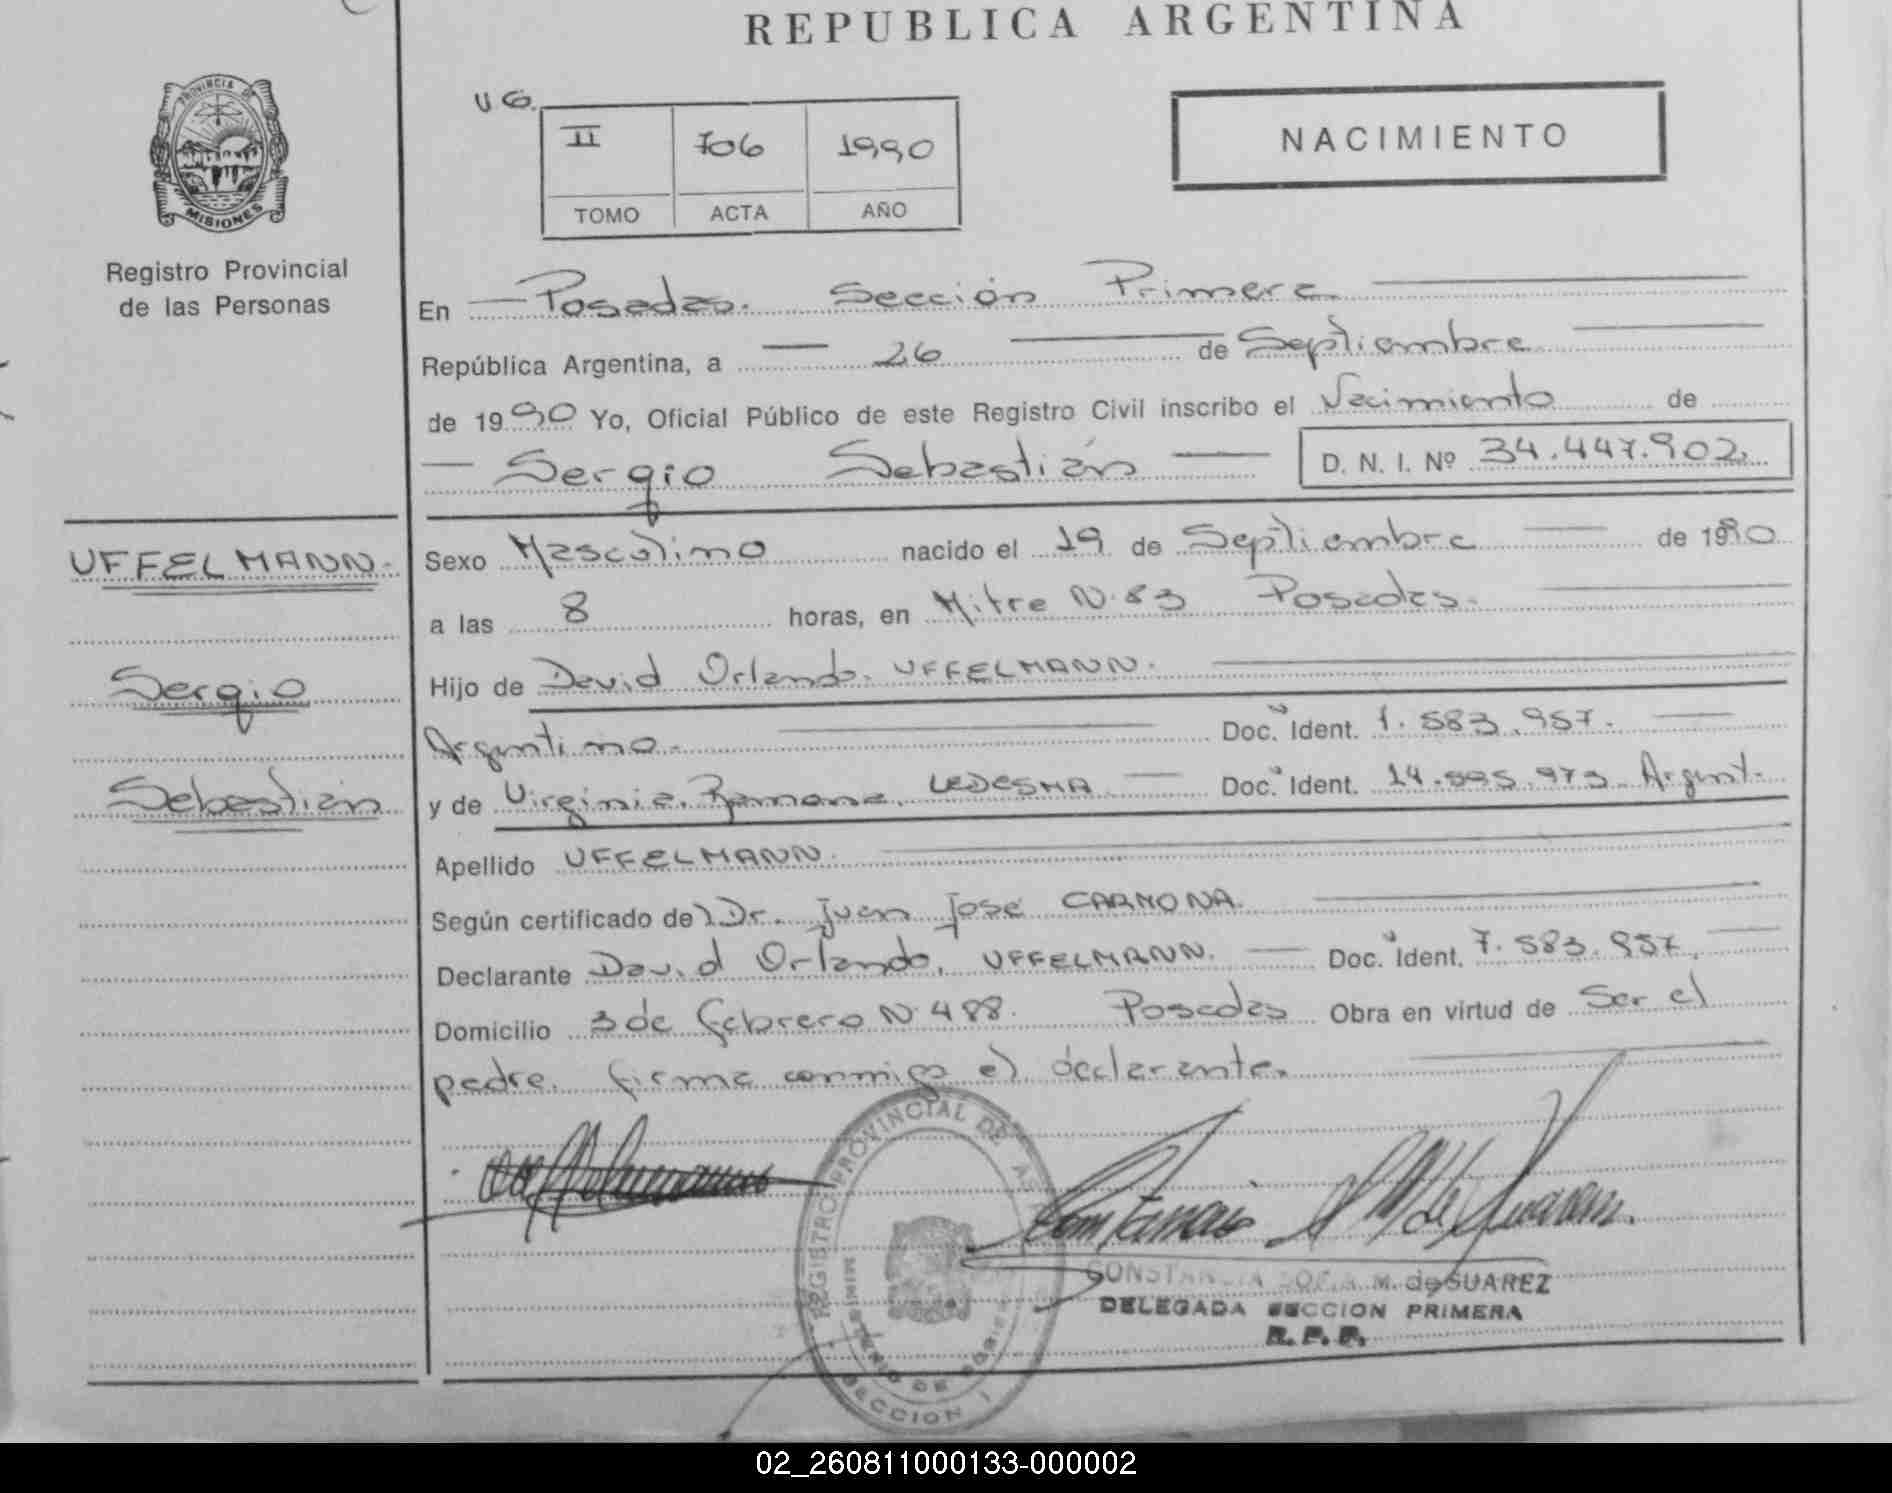 REPUBLICA ARGENTINA
PROVINCIA DE
MISIONES
Registro Provincial
de las Personas
UG.
II 706 1990
TOMO ACTA AÑO
NACIMIENTO
En Posadas. Sección Primera
República Argentina, a 26 de Septiembre
de 1990 Yo, Oficial Público de este Registro Civil inscribo el Nacimiento de
Sergio Sebastián D. N. I. Nº 34.447.902.
UFFELMANN.
Sergio
Sebastián
Sexo Masculino nacido el 19 de Septiembre de 1990
a las 8 horas, en Mitre N. 83 Posadas.
Hijo de David Orlando. UFFELMANN.
Argentino. Doc. Ident. 7.583.957.
y de Virginia, Ramona, LEDESMA Doc. Ident. 14.595.973. Argent.
Apellido UFFELMANN.
Según certificado del Dr. Juan José CARMONA.
Declarante David Orlando, UFFELMANN. Doc. Ident. 7.583.957,
Domicilio 3 de febrero N. 488. Posadas Obra en virtud de Ser el
padre. firma conmigo el declarante.
REGISTRO PROVINCIAL DE
MINISTERIO DE
SECCION I
CONSTANCIA SOFIA M. de SUAREZ
DELEGADA SECCION PRIMERA
R. P. P.
02_260811000133-000002